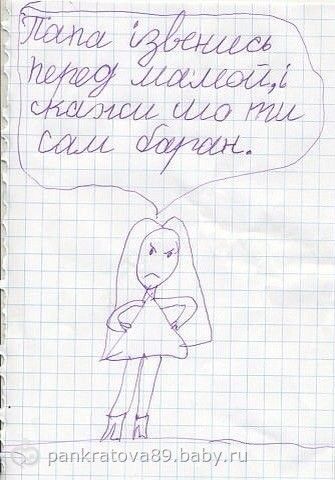 Папа ізвенись
перед мамой, і
скажи шо ти
сам баран.
pankratova89.baby.ru